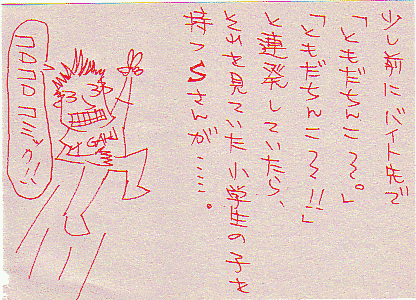 少し前にバイト先で
「ともだちんこ〜。」
「ともだちんこ〜!!」
と連発していたら、
それを見ていた小学生の子を
持つSさんが……。
コロコロコミック!!